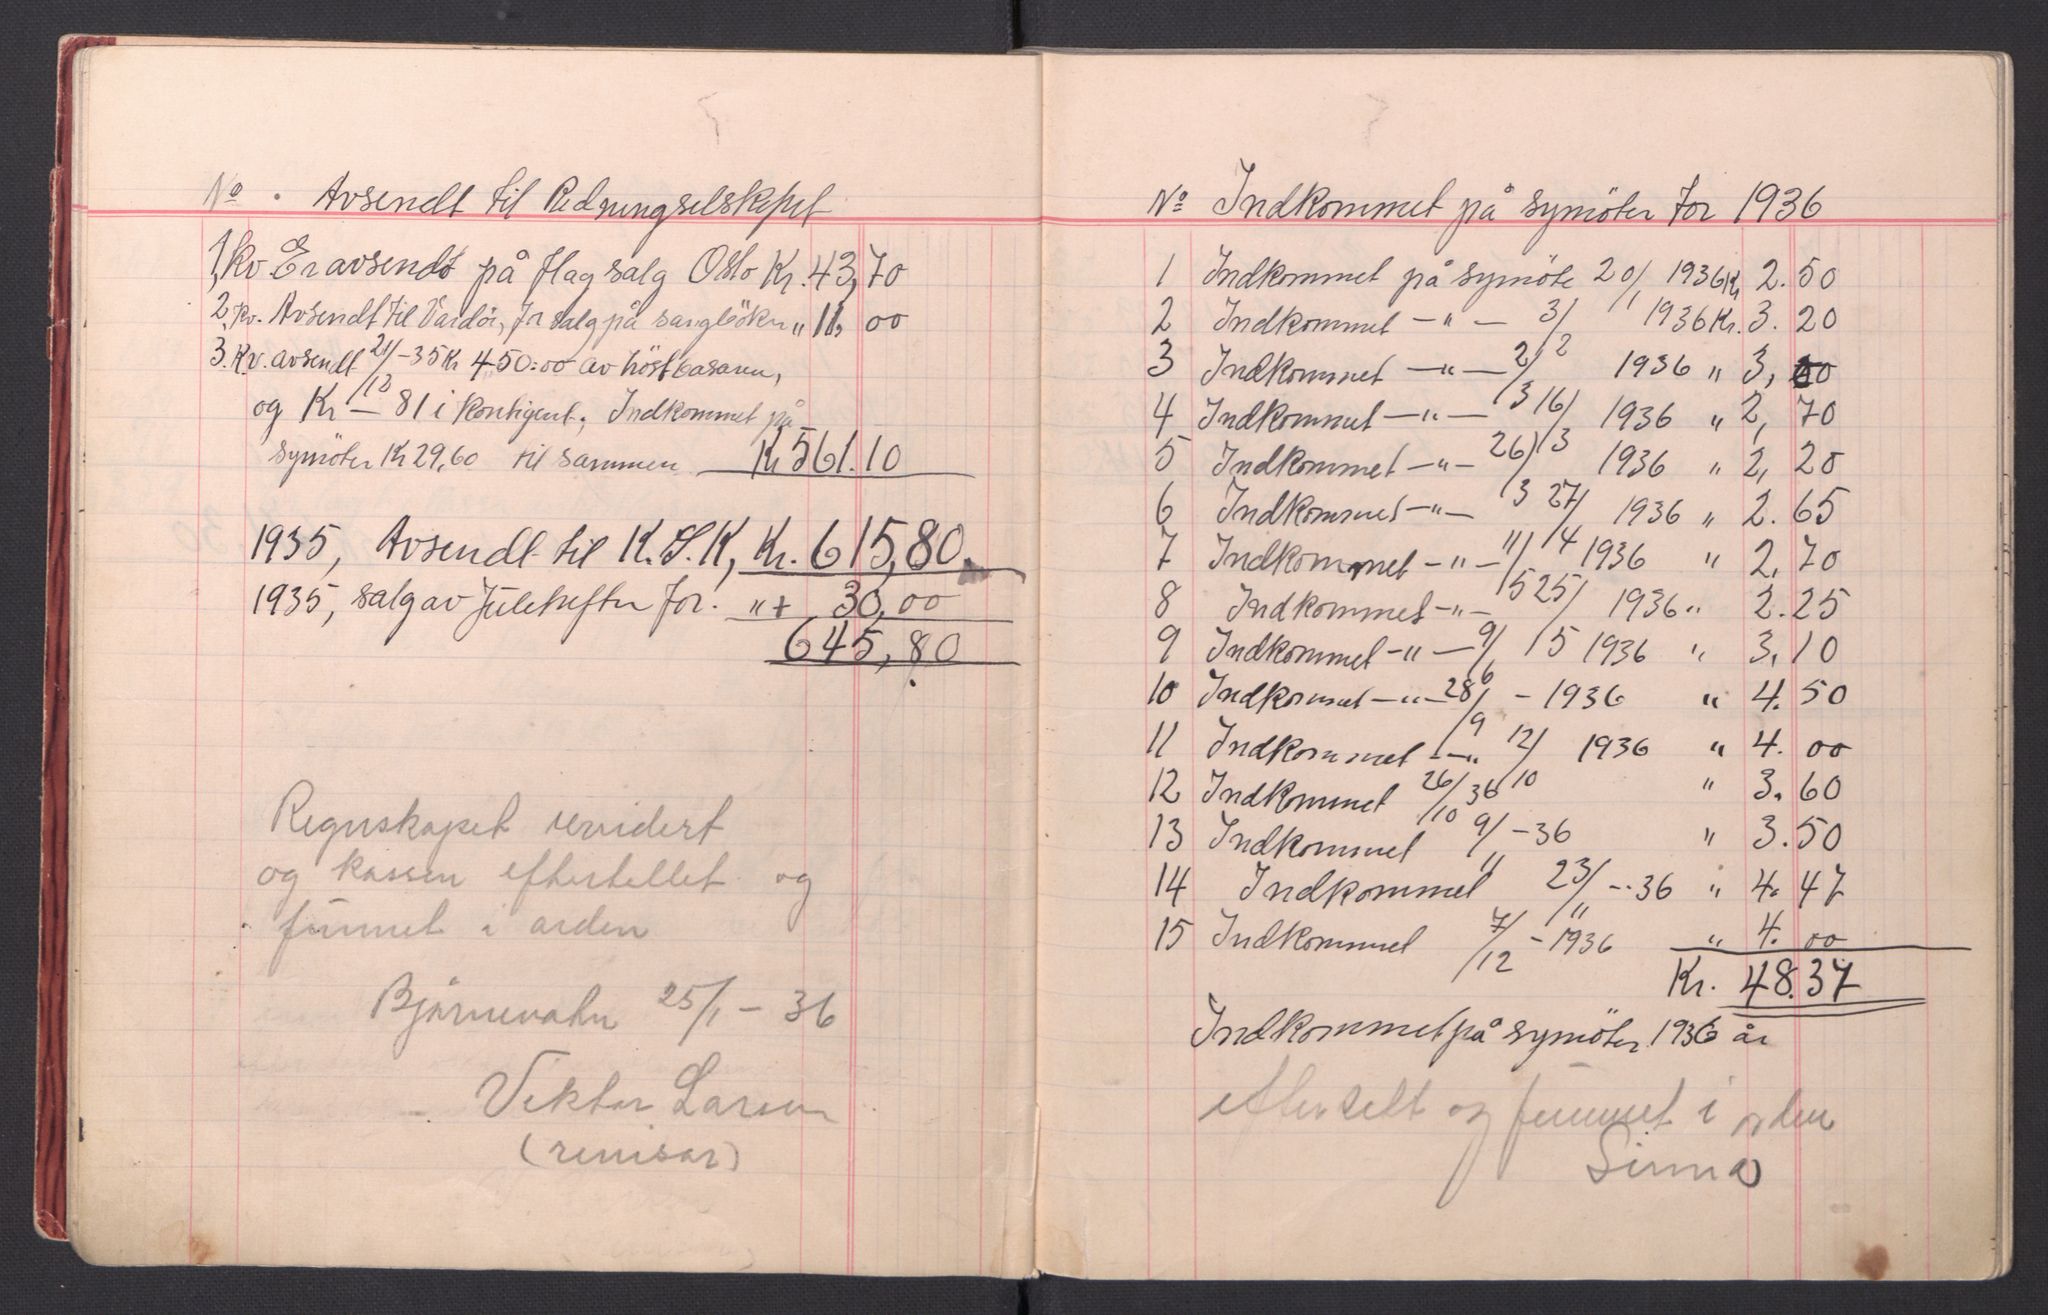 No. Avsendt til Redningselskapet
1, kv. Er avsendt på flag salg Oslo Kr. 43,70
2, kv. Avsendt til Vardö, for salg på sangböker " 11, 00
3. Kv. avsendt 21/12-35 Kr 450:00 av höst basaren,
og Kr — 81 i Kontigent; Indkommet på
symöter Kr 29,60 til sammen Kr 561.10
1935, Avsendt til K.S.K, Kr. 615,80.
1935, salg av Julehefter for. "+ 30,00
645,80
Regnskapet revidert
og kassen eftertellet og
funnet i orden
Bjørnevatn 25/1 - 36
Viktor Larsen
(revisor)
No Indkommet på symöter for 1936
1 Indkommet på symöte 20/1 1936 Kr 2.50
2 Indkommet — " — 3/ 1936 Kr. 3.20
3 Indkommet — " — 2/2 1936 " 3,00
4 Indkommet — " — 16/3 1936 " 2,70
5 Indkommet — " — 26/3 1936 " 2,20
6 Indkommet — " — 27/3 1936 " 2.65
7 Indkommet — " — 11/4 1936 " 2,70
8 Indkommet — " — 25/5 1936 " 2.25
9 Indkommet — " — 9/5 1936 " 3,10
10 Indkommet — " — 28/6 - 1936 " 4.50
11 Indkommet — " 12/9 1936 " 4.00
12 Indkommet 26/10 36 10 " 3.60
13 Indkommet 9/11 - 36 " 3.50
14 Indkommet 23/11 - 36 " 4.47
15 Indkommet 7/12 - 1936 " 4.00
Kr. 48.37
Indkommet på symöter 1936 år
eftertelt og funnet i orden